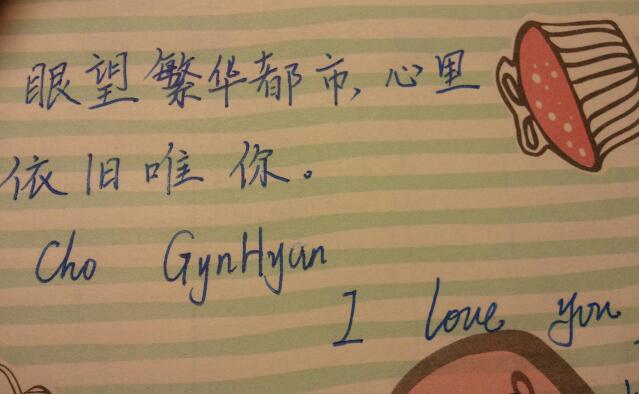 眼望繁华都市,心里
依旧唯你。
Cho GynHyun
I love you